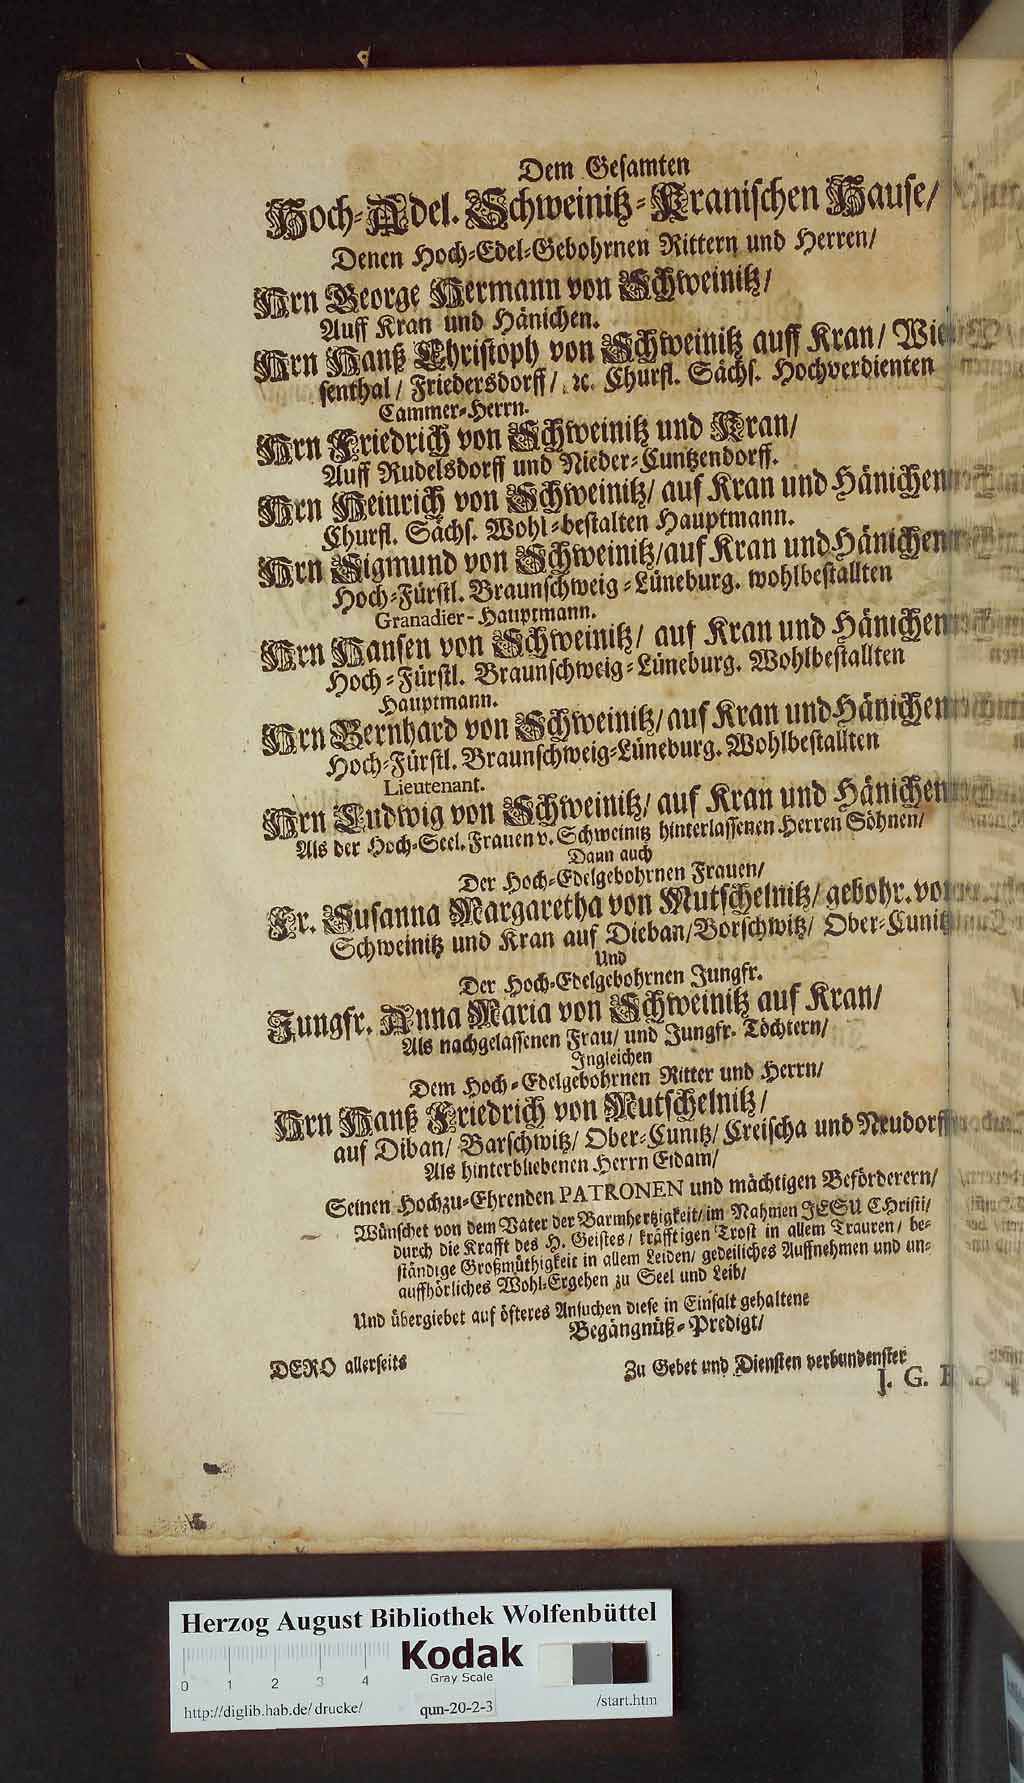 Dem Gesamten
Hoch-Adel. Schweinitz-Kranischen Hause/
Denen Hoch-Edel-Gebohrnen Rittern und Herren/
Hrn George Hermann von Schweinitz/
Auff Kran und Hänichen.
Hrn Hanß Christoph von Schweinitz auff Kran/ Wie
senthal/ Friedersdorff/ ꝛc. Churfl. Sächs. Hochverdienten
Cammer-Herrn.
Hrn Friedrich von Schweinitz und Kran/
Auff Rudelsdorff und Nieder-Cuntzendorff.
Hrn Heinrich von Schweinitz/ auf Kran und Hänichen
Churfl. Sächs. Wohl-bestalten Hauptmann.
Hrn Sigmund von Schweinitz/ auf Kran und Hänichen
Hoch-Fürstl. Braunschweig-Lüneburg. wohlbestallten
Granadier-Hauptmann.
Hrn Hansen von Schweinitz/ auf Kran und Hänichen
Hoch-Fürstl. Braunschweig-Lüneburg. Wohlbestallten
Hauptmann.
Hrn Bernhard von Schweinitz/ auf Kran und Hänichen
Hoch-Fürstl. Braunschweig-Lüneburg. Wohlbestallten
Lieutenant.
Hrn Ludwig von Schweinitz/ auf Kran und Hänichen
Als der Hoch-Seel. Frauen v. Schweinitz hinterlassenen Herren Söhnen/
Dann auch
Der Hoch-Edelgebohrnen Frauen/
Fr. Susanna Margaretha von Mutschelnitz/ gebohr. von
Schweinitz und Kran auf Dieban/ Borschwitz/ Ober-Cunitz
Und
Der Hoch-Edelgebohrnen Jungfr.
Jungfr. Anna Maria von Schweinitz auf Kran/
Als nachgelassenen Frau/ und Jungfr. Töchtern/
Ingleichen
Dem Hoch-Edelgebohrnen Ritter und Herrn/
Hrn Hanß Friedrich von Mutschelnitz/
auf Diban/ Barschwitz/ Ober-Cunitz/ Creischa und Neudorff
Als hinterbliebenen Herrn Eidam/
Seinen Hochzu-Ehrenden PATRONEN und mächtigen Beförderern/
Wünschet von dem Vater der Barmhertzigkeit/ im Nahmen JESU CHristi/
durch die Krafft des H. Geistes/ kräfftigen Trost in allem Trauren/ be-
ständige Großmüthigkeit in allem Leiden/ gedeiliches Auffnehmen und un-
auffhörliches Wohl-Ergehen zu Seel und Leib/
Und übergiebet auf öfteres Ansuchen diese in Einfalt gehaltene
Begängnüß-Predigt/
DERO allerseits
Zu Gebet und Diensten verbundenster
J. G.
Herzog August Bibliothek Wolfenbüttel
Kodak
Gray Scale
0 1 2 3 4
http://diglib.hab.de/drucke/
qun-20-2-3
/start.htm